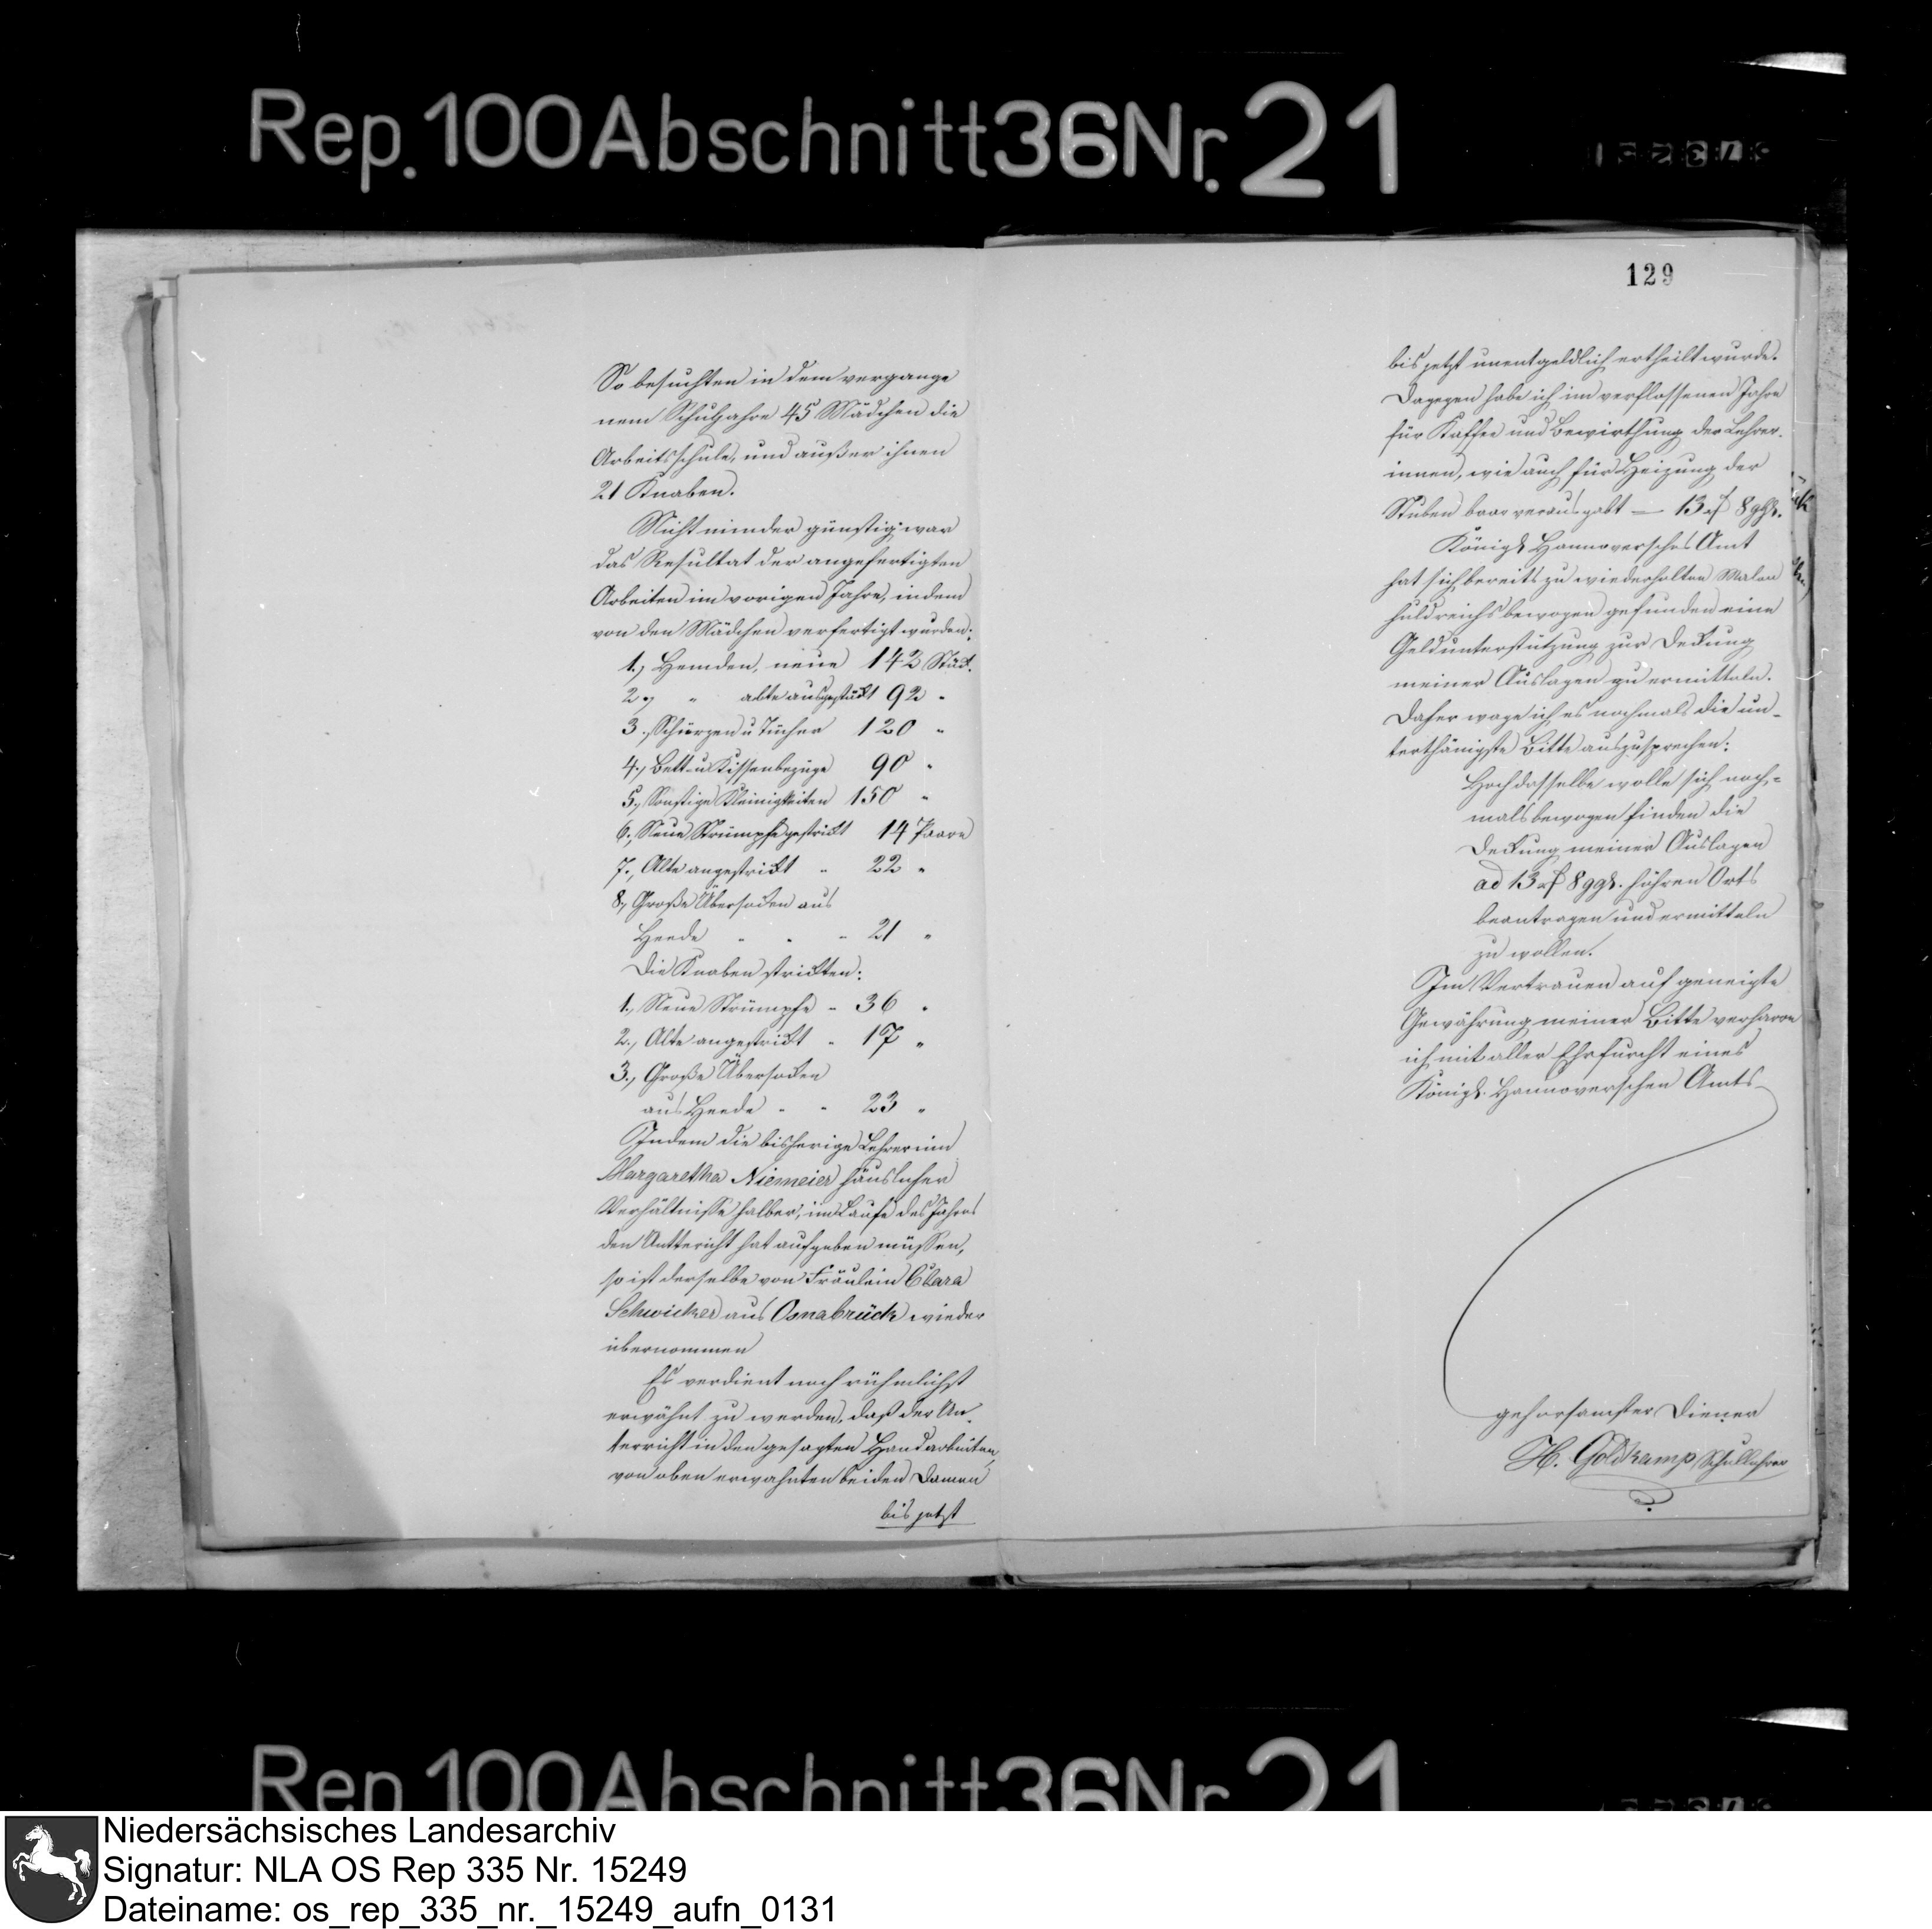 Rep. 100 Abschnitt 36 Nr. 21
So besuchten in dem vergange
nem Schuljahre 45 Mädchen die
Arbeitsschule, und außer ihnen
21 Knaben.
Nicht minder günstig war
das Resultat der angefertigten
Arbeiten im vorigen Jahre, indem
von den Mädchen verfertigt wurden:
1., Hemden, neue 142 Stück.
2., " alte ausgestückt 92 "
3., Schürzen u Tücher 120 "
4., Bett- u Kissenbezüge 90 "
5., Sonstige Kleinigkeiten 150 "
6., Neue Strümpfe gestrickt 14 Paare
7., Alte angestrickt " 22 "
8., Große Übersocken aus
Heede " " " 21 "
Die Knaben strickten:
1., Neue Strümpfe " 36 "
2., Alte angestrickt " 17 "
3., Große Übersocken
aus Heede " " 23 "
Indem die bisherige Lehrerinn
Margaretha Niemeier häuslicher
Verhältnisse halber, im Laufe des Jahres
den Untterricht hat aufgeben müssen,
so ist derselbe von Fräulein Clara
Schwicker aus Osnabrück wieder
übernommen
Es verdient noch rühmlichst
erwähnt zu werden, daß der Un-
terricht in den gesagten Handarbeiten,
von oben erwähnten beiden Damen
bis jetzt
129
bis jetzt unentgeldlich ertheilt wurde.
Dagegen habe ich im verflossenen Jahre
für Kaffee und Bewirthung der Lehrer-
innen, wie auch für Heizung der
Stuben baar verausgabt — 13 rf 8 ggr.
Königl Hannoversches Amt
hat sich bereits zu wiederholten Malen
huldreichst bewogen gefunden eine
Geldunterstützung zur Deckung
meiner Auslagen zu ermitteln.
Daher wage ich es nochmals die un-
terthänigste Bitte auszusprechen:
Hochdasselbe wolle sich noch-
mals bewogen finden die
Deckung meiner Auslagen
ad 13 rf 8 ggr. höhren Orts
beantragen und ermitteln
zu wollen.
Im Vertrauen auf geneigte
Gewährung meiner Bitte verharre
ich mit aller Ehrfurcht eines
Königl. Hannoverschen Amts
gehorsamster Diener
H. Goldkamp Schullehrer
Rep. 100 Abschnitt 36 Nr. 21
Niedersächsisches Landesarchiv
Signatur: NLA OS Rep 335 Nr. 15249
Dateiname: os_rep_335_nr._15249_aufn_0131